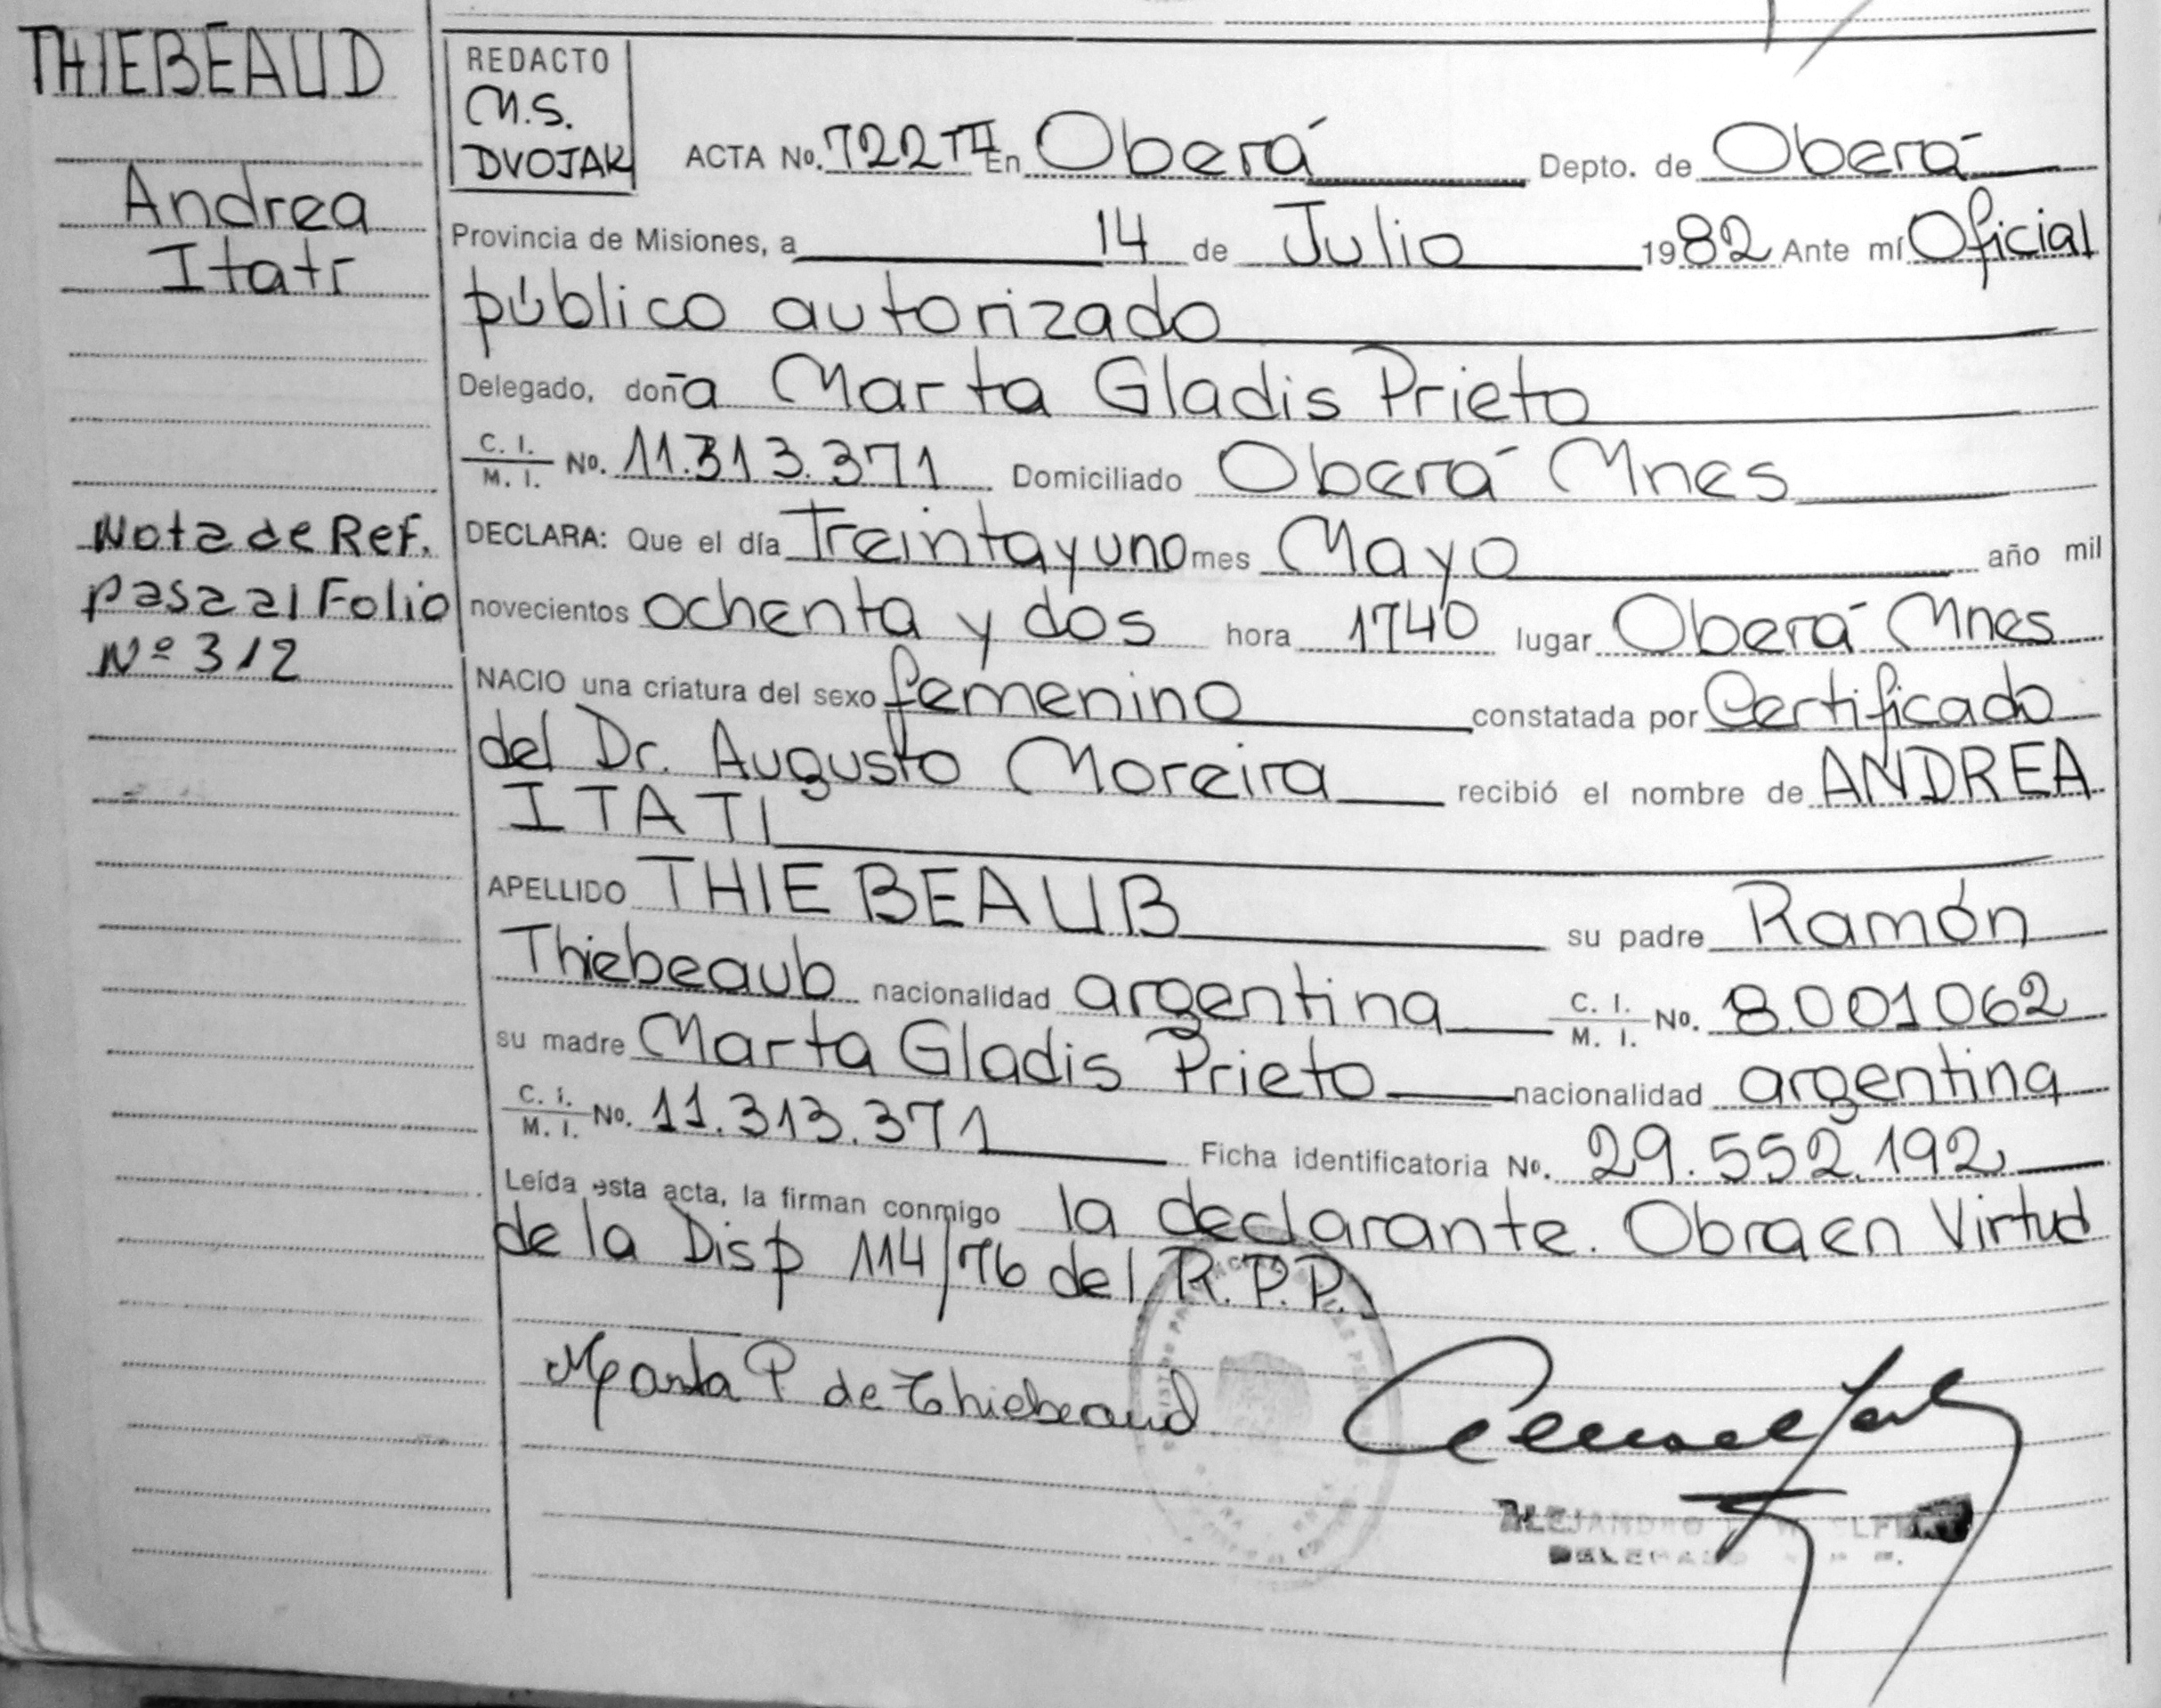 THIEBEAUD
Andrea
Itatí
Nota de Ref.
pasa al Folio
Nº 312
REDACTO
M.S.
DVOJAK
ACTA No. 722 TII En Oberá Depto. de Oberá
Provincia de Misiones, a 14 de Julio 1982 Ante mí Oficial
público autorizado
Delegado, doña Marta Gladis Prieto
C. I. / M. I. No. 11.313.371 Domiciliado Oberá Mnes
DECLARA: Que el día Treinta y uno mes Mayo año mil
novecientos ochenta y dos hora 1740 lugar Oberá Mnes
NACIO una criatura del sexo femenino constatada por Certificado
del Dr. Augusto Moreira recibió el nombre de ANDREA
ITATI
APELLIDO THIEBEAUB su padre Ramón
Thiebeaub nacionalidad argentina C. I. / M. I. No. 8.001.062
su madre Marta Gladis Prieto nacionalidad argentina
C. I. / M. I. No. 11.313.371 Ficha identificatoria No. 29.552.192
Leída esta acta, la firman conmigo la declarante. Obra en Virtud
de la Disp 114/76 del R.P.P.
Marta P. de Thiebeaud
ALEJANDRO
DELEGADO